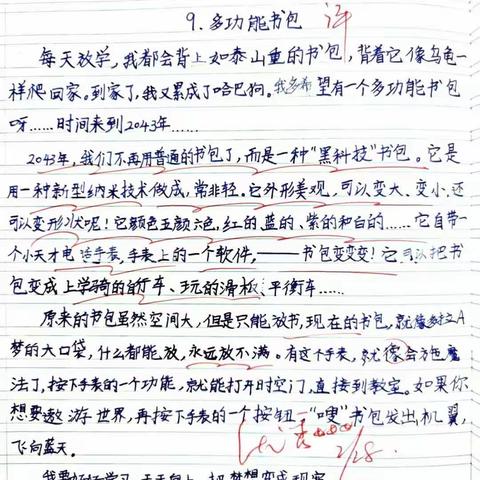 9.多功能书包
每天放学,我都会背上如泰山重的书包,背着它像乌龟一
样爬回家。到家了,我又累成了哈巴狗。我多希望有一个多功能书包
呀……时间来到2043年……
2043年,我们不再用普通的书包了,而是一种“黑科技”书包。它是
用一种新型纳米技术做成,常非轻。它外形美观,可以变大、变小,还
可以变形状呢!它颜色五颜六色,红的、蓝的、紫的和白的……它自带一
个小天才电话手表,手表上的一个软件,——书包变变变!它可以把书
包变成上学骑的自行车、玩的滑板、平衡车……
原来的书包虽然空间大,但是只能放书,现在的书包,就像多拉A
梦的大口袋,什么都能放,永远放不满。有这个手表,就像会施魔
法了,按下手表的一个功能,就能打开时空门,直接到教室。如果你
想要遨游世界,再按下手表的一个按钮,“嗖”书包发出机翼,
飞向蓝天。
我要好好学习,天天向上,把梦想变成现实